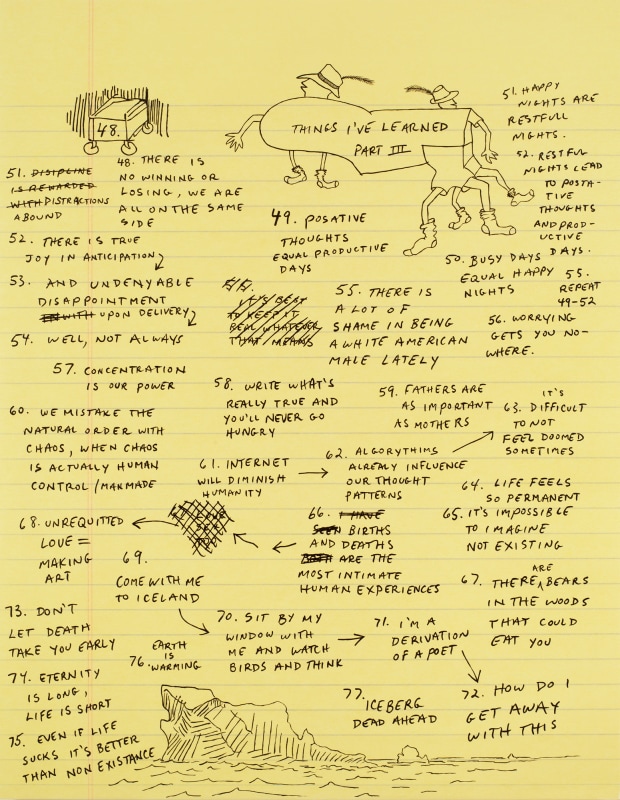 48.
THINGS I'VE LEARNED
PART III
48. THERE IS
NO WINNING OR
LOSING, WE ARE
ALL ON THE SAME
SIDE
49. POSATIVE
THOUGHTS
EQUAL PRODUCTIVE
DAYS
50. BUSY DAYS
EQUAL HAPPY
NIGHTS
51. HAPPY
NIGHTS ARE
RESTFULL
NIGHTS.
52. RESTFUL
NIGHTS LEAD
TO POSTA-
TIVE
THOUGHTS
AND PROD-
UCTIVE
DAYS.
55.
REPEAT
49-52
51. DISIPLINE
IS REWARDED
WITH DISTRACTIONS
ABOUND
52. THERE IS TRUE
JOY IN ANTICIPATION
53. AND UNDENYABLE
DISAPPOINTMENT
UPON DELIVERY
54. WELL, NOT ALWAYS
IT'S BEST
TO KEEP IT
REAL WHATEVER
THAT MEANS
55. THERE IS
A LOT OF
SHAME IN BEING
A WHITE AMERICAN
MALE LATELY
56. WORRYING
GETS YOU NO-
WHERE.
57. CONCENTRATION
IS OUR POWER
58. WRITE WHAT'S
REALLY TRUE AND
YOU'LL NEVER GO
HUNGRY
59. FATHERS ARE
AS IMPORTANT
AS MOTHERS
60. WE MISTAKE THE
NATURAL ORDER WITH
CHAOS, WHEN CHAOS
IS ACTUALLY HUMAN
CONTROL/MANMADE
61. INTERNET
WILL DIMINISH
HUMANITY
62. ALGORYTHIMS
ALREADY INFLUENCE
OUR THOUGHT
PATTERNS
IT'S
63. DIFFICULT
TO NOT
FEEL DOOMED
SOMETIMES
64. LIFE FEELS
SO PERMANENT
65. IT'S IMPOSSIBLE
TO IMAGINE
NOT EXISTING
66. I HAVE
SEEN BIRTHS
AND DEATHS
BOTH ARE THE
MOST INTIMATE
HUMAN EXPERIENCES
ARE
67. THERE BEARS
IN THE WOODS
THAT COULD
EAT YOU
68. UNREQUITTED
LOVE =
MAKING
ART
69.
COME WITH ME
TO ICELAND
70. SIT BY MY
WINDOW WITH
ME AND WATCH
BIRDS AND THINK
71. I'M A
DERIVATION
OF A POET
72. HOW DO I
GET AWAY
WITH THIS
73. DON'T
LET DEATH
TAKE YOU EARLY
74. ETERNITY
IS LONG,
LIFE IS SHORT
75. EVEN IF LIFE
SUCKS IT'S BETTER
THAN NON EXISTANCE
76. EARTH
IS
WARMING
77. ICEBERG
DEAD AHEAD